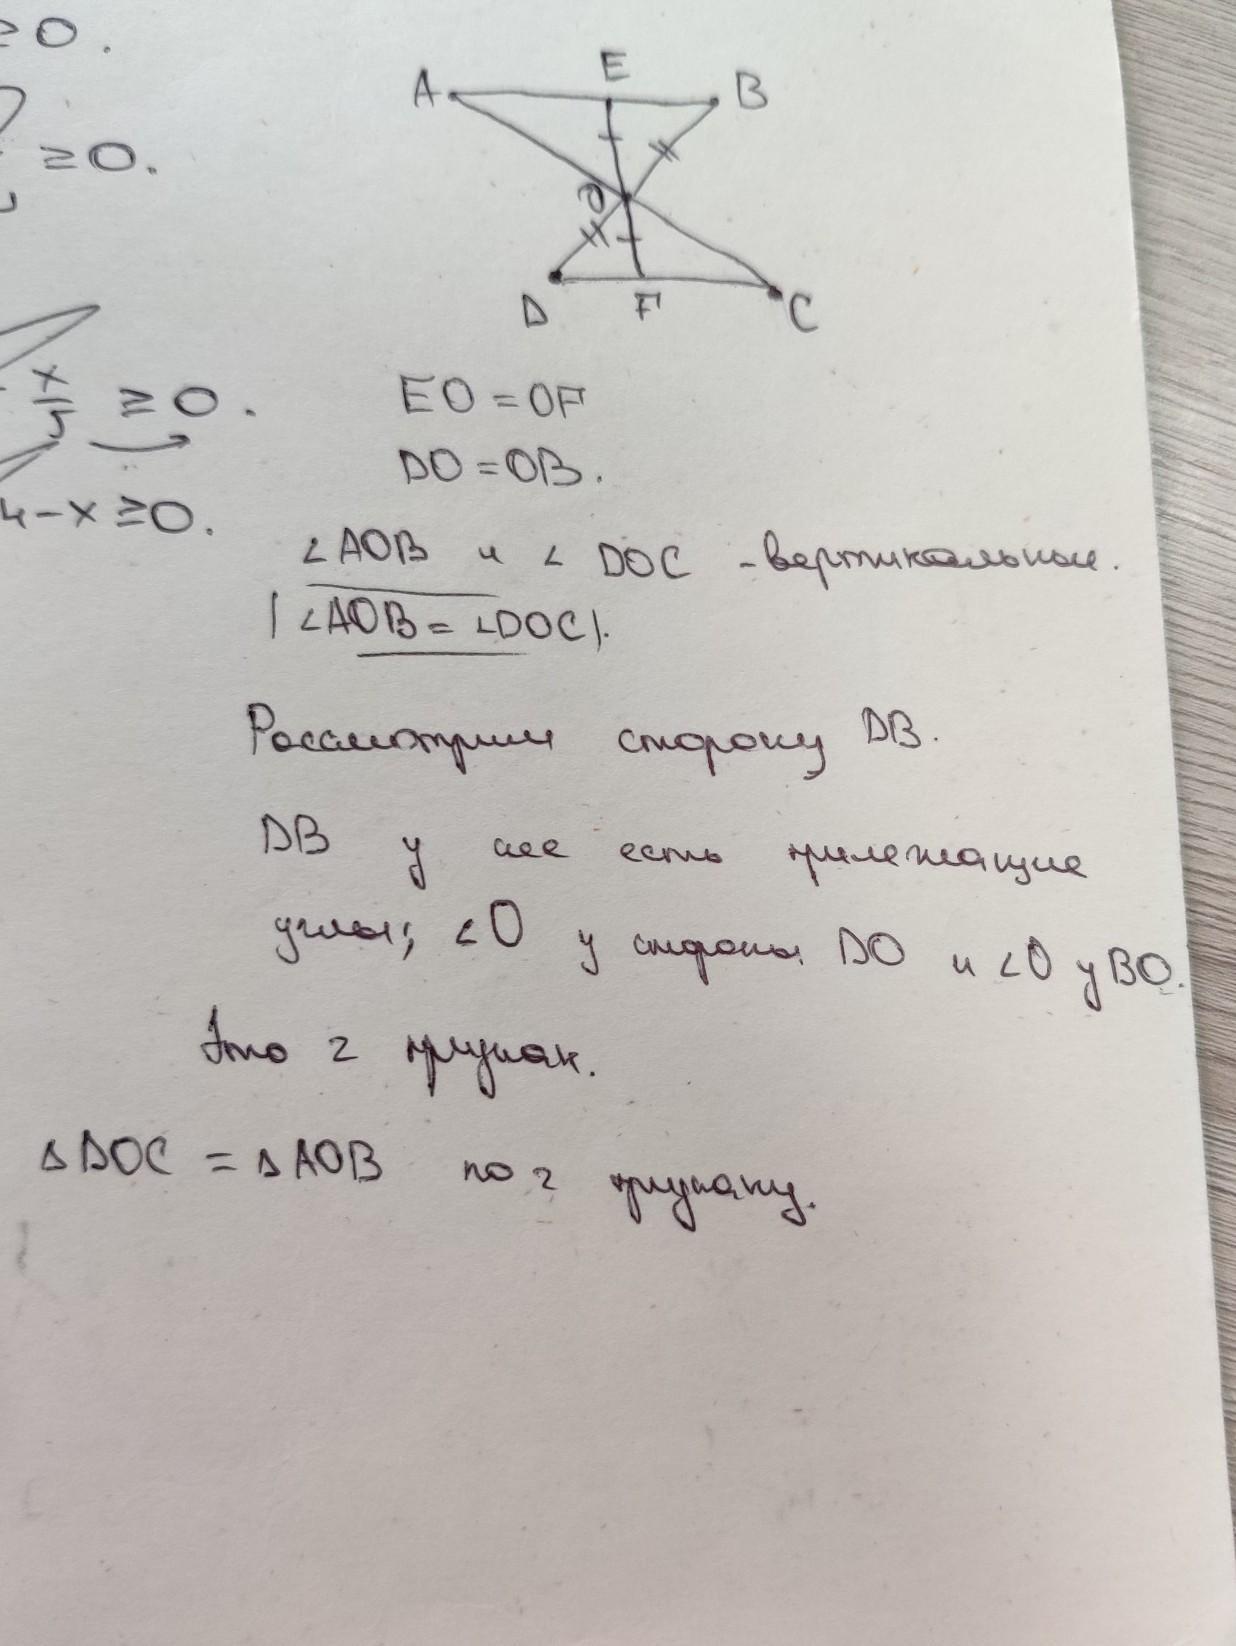 ≥0.
≥0.
x/5 ≥0.
4-x≥0.
E
A B
O
D F C
EO=OF
DO=OB.
∠AOB и ∠DOC -вертикальные.
|∠AOB=∠DOC|.
Рассмотрим сторону DB.
DB у нее есть прилежащие
углы; ∠O у стороны DO и ∠O у BO.
Это 2 признак.
△DOC = △AOB по 2 признаку.